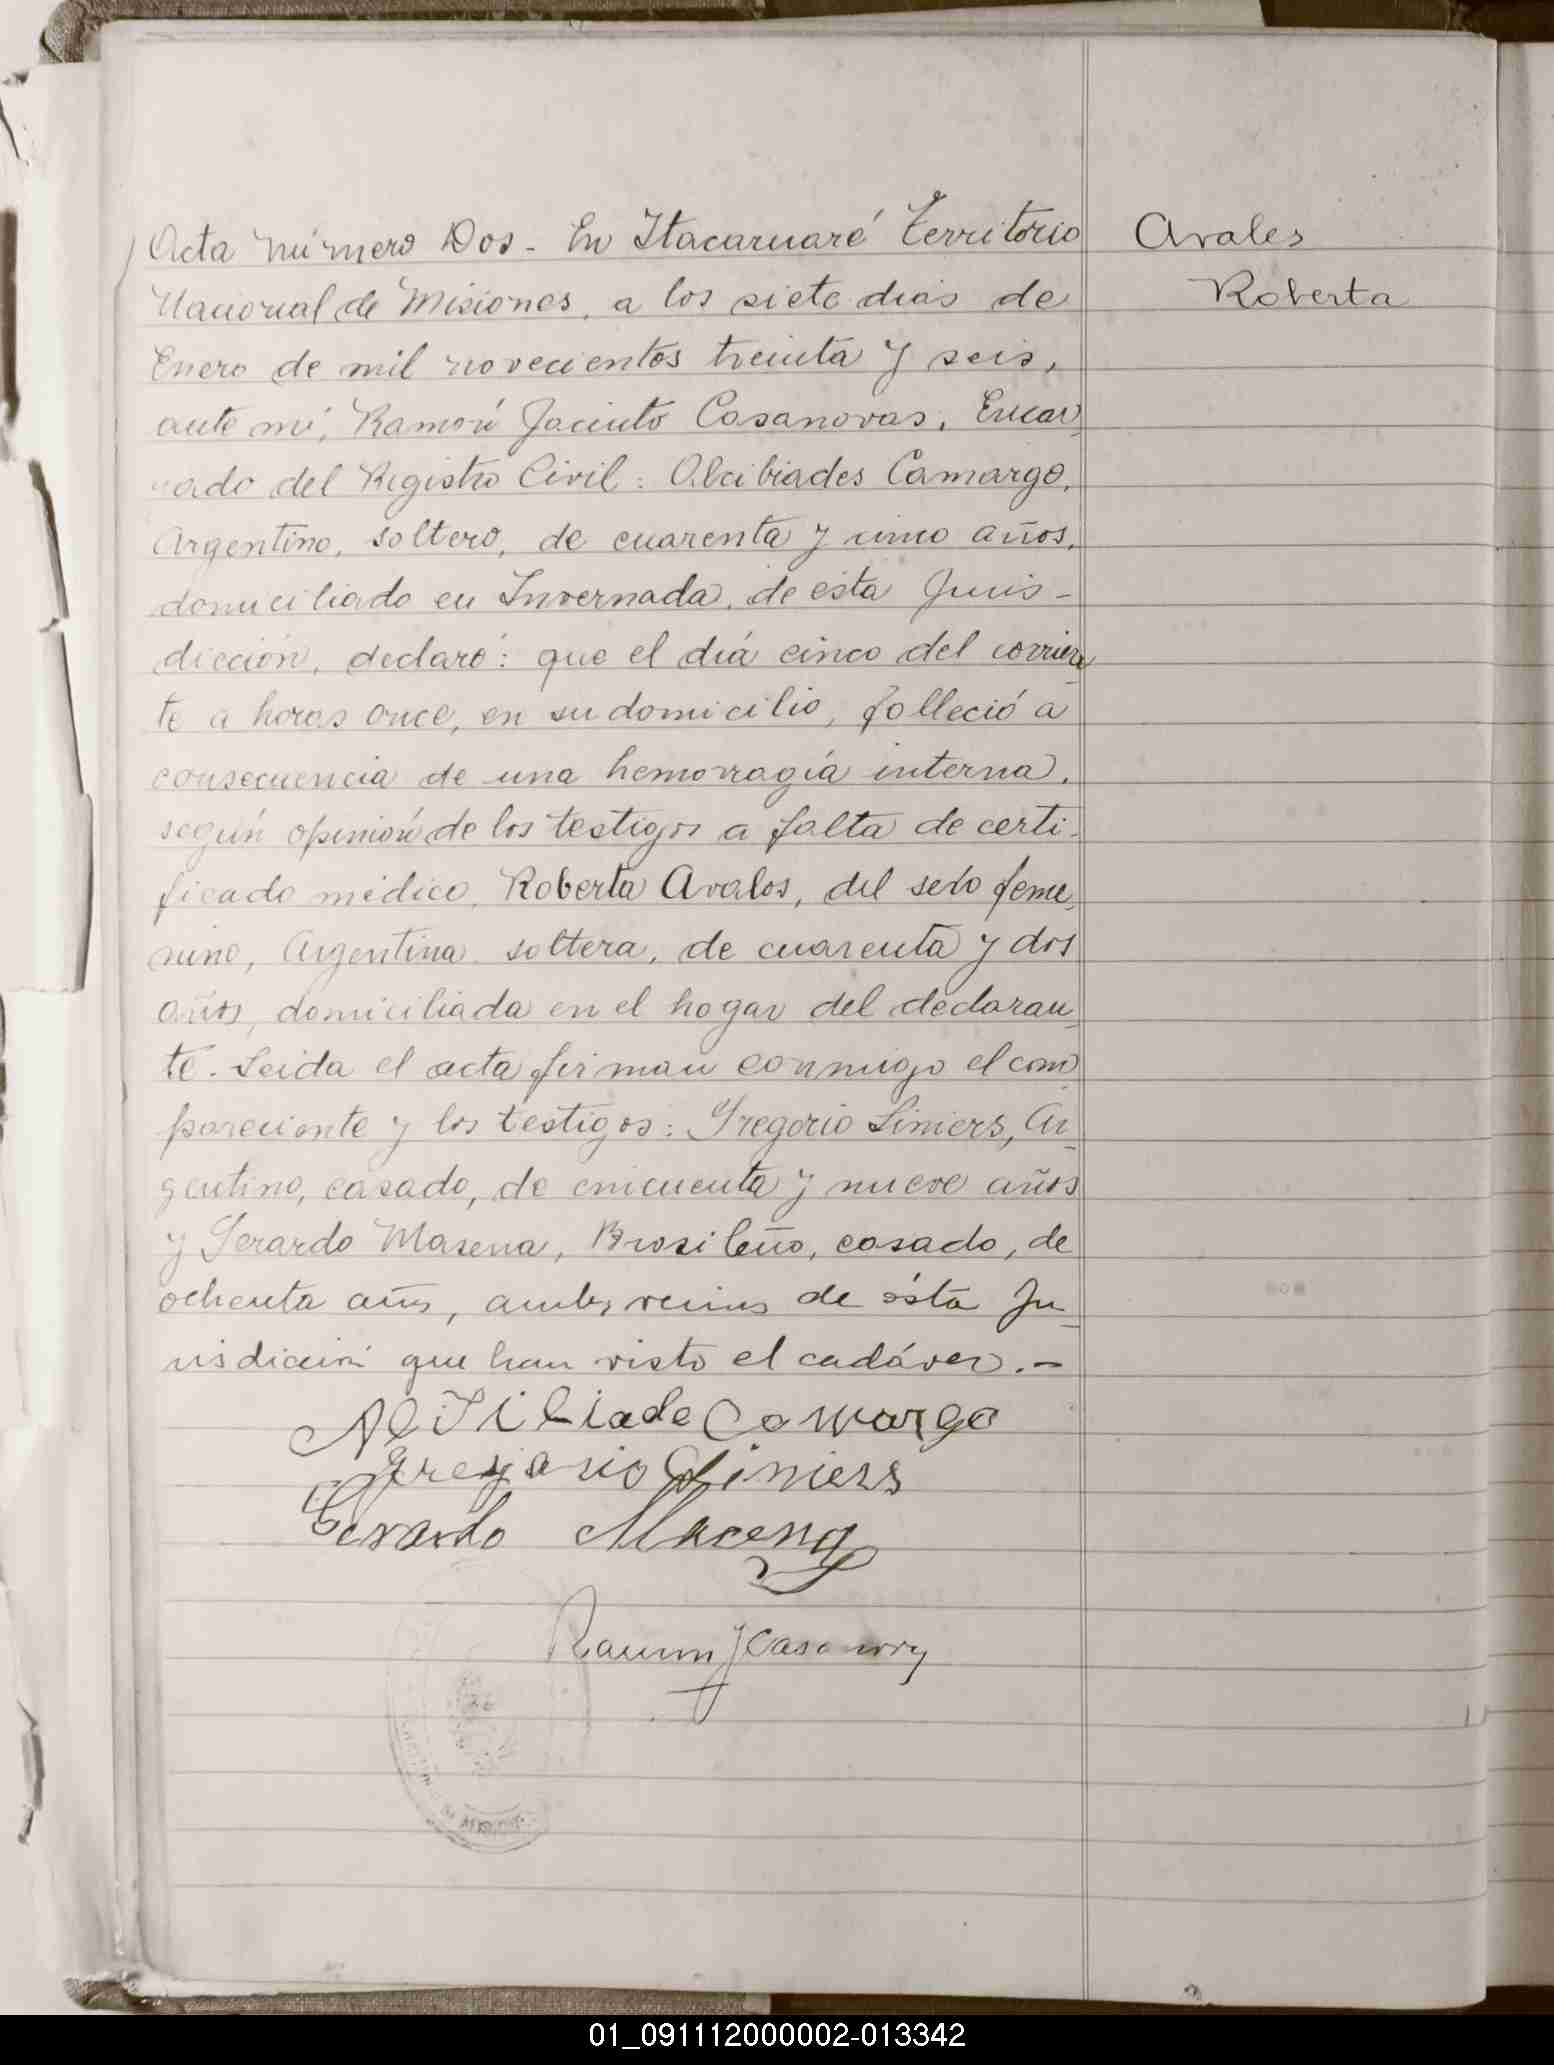 Acta número Dos - En Itacaruaré Territorio
Nacional de Misiones, a los siete dias de
Enero de mil novecientos treinta y seis,
ante mi, Ramón Jacinto Casanovas, Encar
gado del Registro Civil: Alcibiades Camargo,
Argentino, soltero, de cuarenta y cinco años,
domiciliado en Invernada, de esta Juris-
dicción, declaró: que el diá cinco del corrien
te a horas once, en su domicilio, falleció a
consecuencia de una hemorragía interna,
según opinión de los testigos a falta de certi-
ficado médico, Roberta Avalos, del sexo feme
nino, Argentina, soltera, de cuarenta y dos
años, domiciliada en el hogar del declaran
te. Leida el acta firman conmigo el com
pareciente y los testigos: Gregorio Liniers, Ar
gentino, casado, de cincuenta y nueve años
y Gerardo Masena, Brasileño, casado, de
ochenta años, ambos vecinos de ésta Ju
risdicción que han visto el cadáver.-
Camargo
Gregorio Liniers
Gerardo Macena
Ramón J Casanovas
Avales
Roberta
01_091112000002-013342